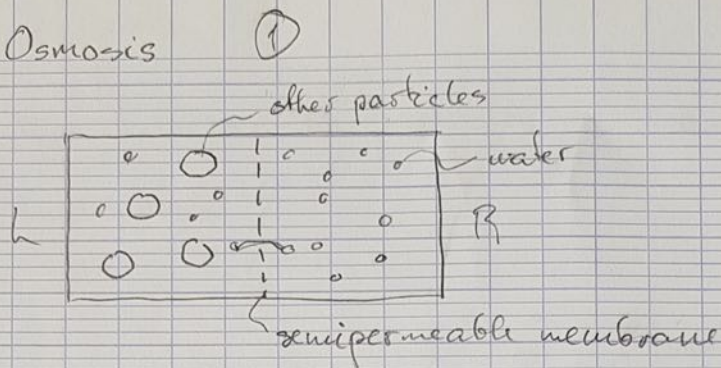 Osmosis ①
other particles
water
L R
semipermeable membrane